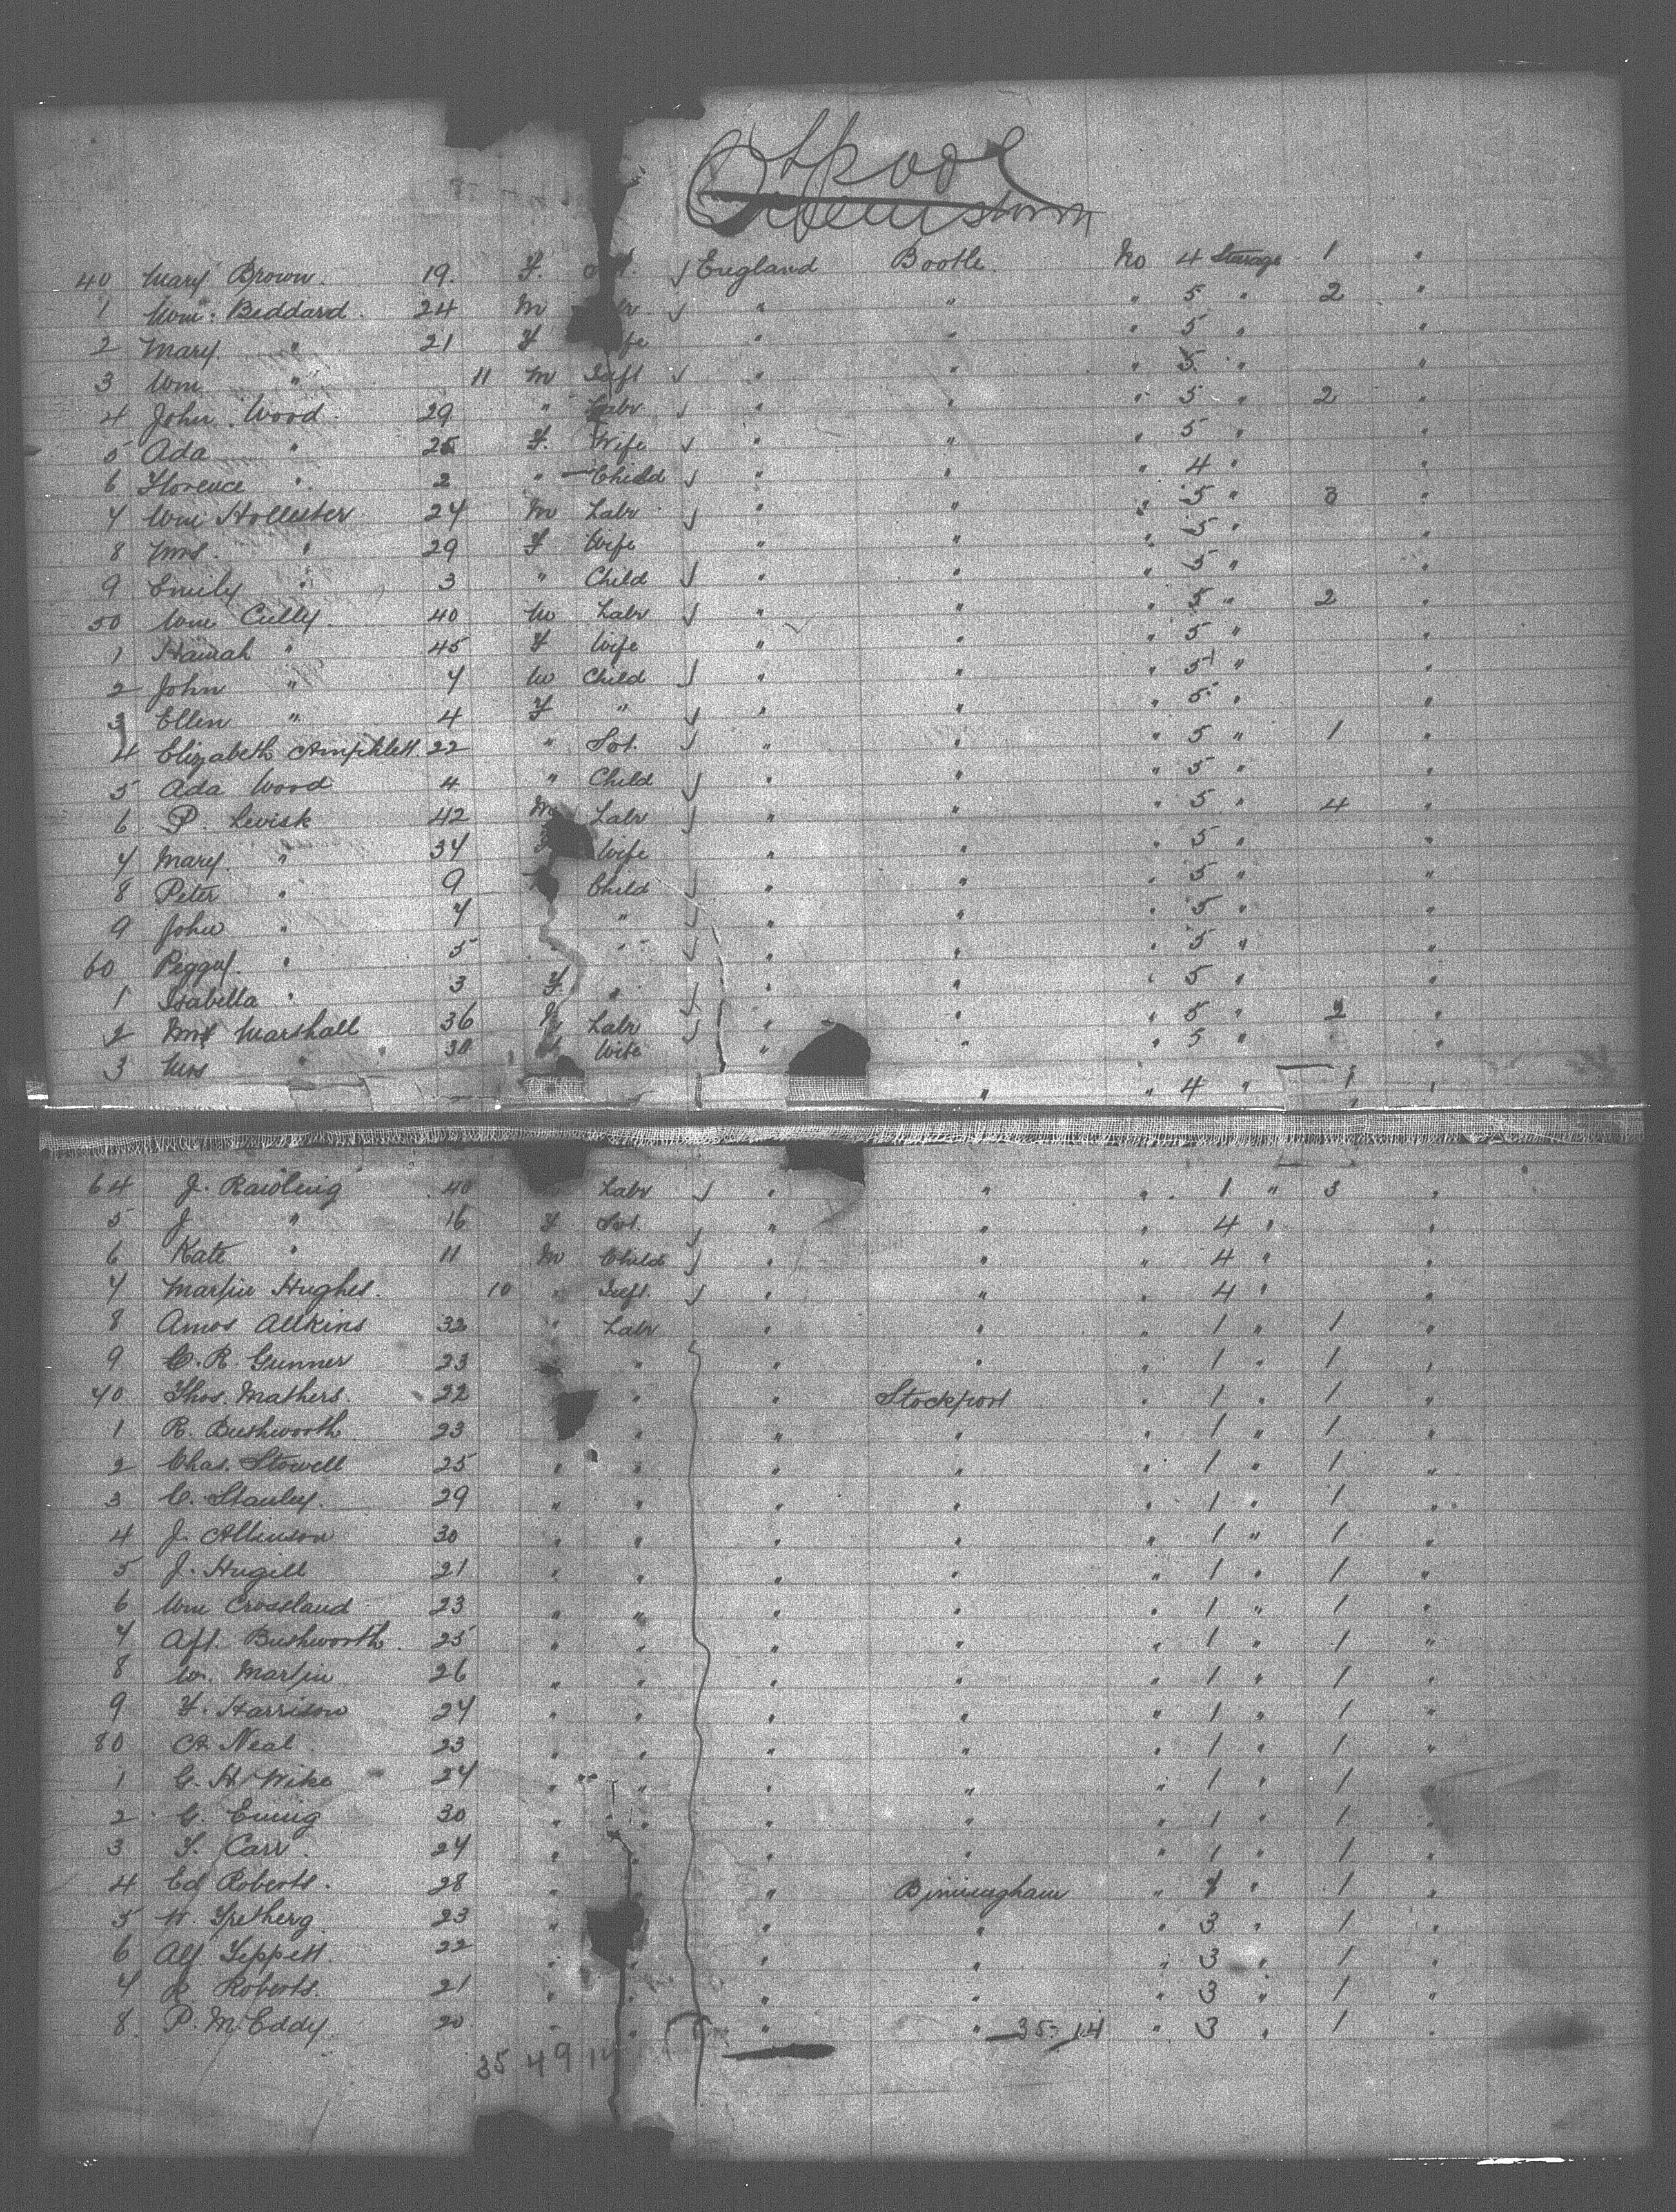 L'pool
Queenstown
40 Mary Brown. 19. F. England Bootle. No 4 Steerage 1 "
1 Wm: Beddard. 24 M " " " 5 " 2 "
2 Mary " 21 F " " " 5 " "
3 Wm " 11 M Inft " " " 5 " "
4 John Wood. 29 " Labr " " " 5 " 2 "
5 Ada " 25 F. Wife " " " 5 " "
6 Florence " 2 " Child " " " 4 " "
7 Wm Hollester 27 M Labr " " " 5 " 3 "
8 Mrs. " 29 F Wife " " " 5 " "
9 Emily " 3 " Child " " " 5 " "
50 Wm Cully. 40 M Labr " " " 5 " 2 "
1 Hanah " 45 F Wife " " " 5 " "
2 John " 7 M Child " " " 5 " "
3 Ellen " 4 F " " " " 5 " "
4 Elizabeth Amphlett. 22 " Spt. " " " 5 " 1 "
5 Ada Wood 4 " Child " " " 5 " "
6 P. Levisk 42 M Labr " " " 5 " 4 "
7 Mary. " 37 Wife " " " 5 " "
8 Peter " 9 Child " " " 5 " "
9 John " 7 " " " " 5 " "
60 Peggy. " 5 " " " " 5 " "
1 Isabella " 3 F " " " " 5 " "
2 Marshall 36 Labr " " " 5 " 2 "
3 Mrs " 30 Wife " " " 5 "
" " 4 " 1 "
64 J. Rawling 40 Labr " " " 1 " 3 "
5 J " 16 F Spt. " " " 4 " "
6 Kate " 11 M Child " " " 4 "
7 Martin Hughes. 10 " Inft. " " " 4 " "
8 Amos Allkins 32 " Labr " " " 1 " 1 "
9 C. R. Gunner 23 " " " " 1 " 1 "
70 Thos. Mathers. 22 " " Stockport " 1 " 1 "
1 R. Bushworth 23 " " " " 1 " 1 "
2 Chas. Stowell 25 " " " " " 1 " 1 "
3 C. Stanley. 29 " " " " " 1 " 1 "
4 J. Allinson 30 " " " " " 1 " 1 "
5 J. Hugill 21 " " " " " 1 " 1 "
6 Wm Crossland 23 " " " " " 1 " 1 "
7 Bushworth. 25 " " " " " 1 " 1 "
8 W. Martin 26 " " " " " 1 " 1 "
9 F. Harrison 27 " " " " " 1 " 1 "
80 A. Neal 23 " " " " " 1 " 1 "
1 G. H. Wike 27 " " " " " 1 " 1 "
2 G. Ewing 30 " " " " " 1 " 1 "
3 T. Carr. 27 " " " " " 1 " 1 "
4 Ed Roberts. 28 " " " Birmingham " " 1 "
5 23 " " " " 3 " 1 "
6 Alf Tippett. 22 " " " " " 3 " 1 "
7 R. Roberts. 21 " " " " " 3 " 1 "
8. P. McEddy. 20 " " " " 35-14 " 3 " 1 "
35 49 14